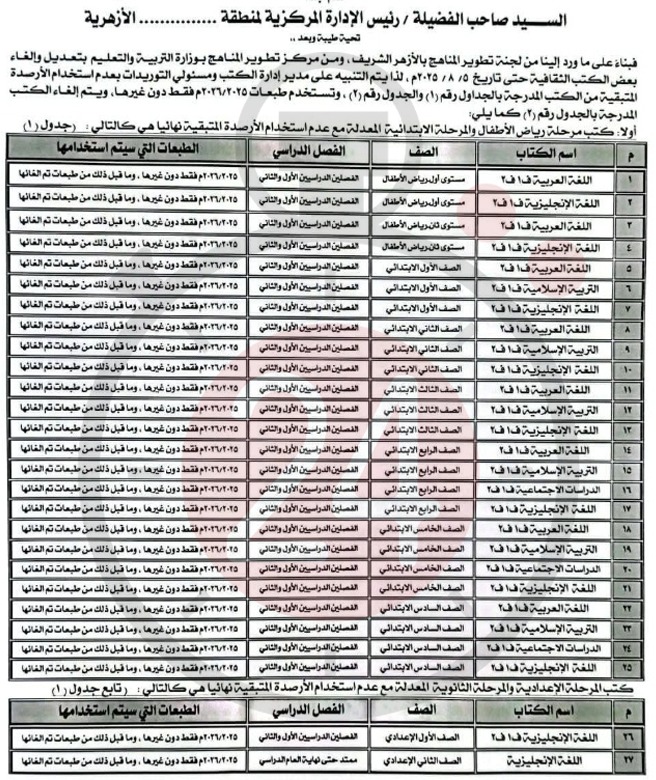 السيد صاحب الفضيلة / رئيس الإدارة المركزية لمنطقة ............... الأزهرية
تحية طيبة وبعد ،،
فبناءً على ما ورد إلينا من لجنة تطوير المناهج بالأزهر الشريف، ومن مركز تطوير المناهج بوزارة التربية والتعليم بتعديل وإلغاء
بعض الكتب الثقافية حتى تاريخ ٢٠٢٥/٨/٥م، لذا يتم التنبيه على مدير إدارة الكتب ومسئولي التوريدات بعدم استخدام الأرصدة
المتبقية من الكتب المدرجة بالجداول رقم (١) والجدول رقم (٢)، وتستخدم طبعات ٢٠٢٦/٢٠٢٥م فقط دون غيرها، ويتم إلغاء الكتب
المدرجة بالجدول رقم (٢) كما يلي:
أولا: كتب مرحلة رياض الأطفال والمرحلة الابتدائية المعدلة مع عدم استخدام الأرصدة المتبقية نهائيا هي كالتالي: (جدول ١)
م اسم الكتاب الصف الفصل الدراسي الطبعات التي سيتم استخدامها
١ اللغة العربية ف١ ف٢ مستوى أول رياض الأطفال الفصلين الدراسيين الأول والثاني ٢٠٢٦/٢٠٢٥م فقط دون غيرها، وما قبل ذلك من طبعات تم الغائها
٢ اللغة الإنجليزية ف١ ف٢ مستوى أول رياض الأطفال الفصلين الدراسيين الأول والثاني ٢٠٢٦/٢٠٢٥م فقط دون غيرها، وما قبل ذلك من طبعات تم الغائها
٣ اللغة العربية ف١ ف٢ مستوى ثان رياض الأطفال الفصلين الدراسيين الأول والثاني ٢٠٢٦/٢٠٢٥م فقط دون غيرها، وما قبل ذلك من طبعات تم الغائها
٤ اللغة الإنجليزية ف١ ف٢ مستوى ثان رياض الأطفال الفصلين الدراسيين الأول والثاني ٢٠٢٦/٢٠٢٥م فقط دون غيرها، وما قبل ذلك من طبعات تم الغائها
٥ اللغة العربية ف١ ف٢ الصف الأول الابتدائي الفصلين الدراسيين الأول والثاني ٢٠٢٦/٢٠٢٥م فقط دون غيرها، وما قبل ذلك من طبعات تم الغائها
٦ التربية الإسلامية ف١ ف٢ الصف الأول الابتدائي الفصلين الدراسيين الأول والثاني ٢٠٢٦/٢٠٢٥م فقط دون غيرها، وما قبل ذلك من طبعات تم الغائها
٧ اللغة الإنجليزية ف١ ف٢ الصف الأول الابتدائي الفصلين الدراسيين الأول والثاني ٢٠٢٦/٢٠٢٥م فقط دون غيرها، وما قبل ذلك من طبعات تم الغائها
٨ اللغة العربية ف١ ف٢ الصف الثاني الابتدائي الفصلين الدراسيين الأول والثاني ٢٠٢٦/٢٠٢٥م فقط دون غيرها، وما قبل ذلك من طبعات تم الغائها
٩ التربية الإسلامية ف١ ف٢ الصف الثاني الابتدائي الفصلين الدراسيين الأول والثاني ٢٠٢٦/٢٠٢٥م فقط دون غيرها، وما قبل ذلك من طبعات تم الغائها
١٠ اللغة الإنجليزية ف١ ف٢ الصف الثاني الابتدائي الفصلين الدراسيين الأول والثاني ٢٠٢٦/٢٠٢٥م فقط دون غيرها، وما قبل ذلك من طبعات تم الغائها
١١ اللغة العربية ف١ ف٢ الصف الثالث الابتدائي الفصلين الدراسيين الأول والثاني ٢٠٢٦/٢٠٢٥م فقط دون غيرها، وما قبل ذلك من طبعات تم الغائها
١٢ التربية الإسلامية ف١ ف٢ الصف الثالث الابتدائي الفصلين الدراسيين الأول والثاني ٢٠٢٦/٢٠٢٥م فقط دون غيرها، وما قبل ذلك من طبعات تم الغائها
١٣ اللغة الإنجليزية ف١ ف٢ الصف الثالث الابتدائي الفصلين الدراسيين الأول والثاني ٢٠٢٦/٢٠٢٥م فقط دون غيرها، وما قبل ذلك من طبعات تم الغائها
١٤ اللغة العربية ف١ ف٢ الصف الرابع الابتدائي الفصلين الدراسيين الأول والثاني ٢٠٢٦/٢٠٢٥م فقط دون غيرها، وما قبل ذلك من طبعات تم الغائها
١٥ التربية الإسلامية ف١ ف٢ الصف الرابع الابتدائي الفصلين الدراسيين الأول والثاني ٢٠٢٦/٢٠٢٥م فقط دون غيرها، وما قبل ذلك من طبعات تم الغائها
١٦ الدراسات الاجتماعية ف١ ف٢ الصف الرابع الابتدائي الفصلين الدراسيين الأول والثاني ٢٠٢٦/٢٠٢٥م فقط دون غيرها، وما قبل ذلك من طبعات تم الغائها
١٧ اللغة الإنجليزية ف١ ف٢ الصف الرابع الابتدائي الفصلين الدراسيين الأول والثاني ٢٠٢٦/٢٠٢٥م فقط دون غيرها، وما قبل ذلك من طبعات تم الغائها
١٨ اللغة العربية ف١ ف٢ الصف الخامس الابتدائي الفصلين الدراسيين الأول والثاني ٢٠٢٦/٢٠٢٥م فقط دون غيرها، وما قبل ذلك من طبعات تم الغائها
١٩ التربية الإسلامية ف١ ف٢ الصف الخامس الابتدائي الفصلين الدراسيين الأول والثاني ٢٠٢٦/٢٠٢٥م فقط دون غيرها، وما قبل ذلك من طبعات تم الغائها
٢٠ الدراسات الاجتماعية ف١ ف٢ الصف الخامس الابتدائي الفصلين الدراسيين الأول والثاني ٢٠٢٦/٢٠٢٥م فقط دون غيرها، وما قبل ذلك من طبعات تم الغائها
٢١ اللغة الإنجليزية ف١ ف٢ الصف الخامس الابتدائي الفصلين الدراسيين الأول والثاني ٢٠٢٦/٢٠٢٥م فقط دون غيرها، وما قبل ذلك من طبعات تم الغائها
٢٢ اللغة العربية ف١ ف٢ الصف السادس الابتدائي الفصلين الدراسيين الأول والثاني ٢٠٢٦/٢٠٢٥م فقط دون غيرها، وما قبل ذلك من طبعات تم الغائها
٢٣ التربية الإسلامية ف١ ف٢ الصف السادس الابتدائي الفصلين الدراسيين الأول والثاني ٢٠٢٦/٢٠٢٥م فقط دون غيرها، وما قبل ذلك من طبعات تم الغائها
٢٤ الدراسات الاجتماعية ف١ ف٢ الصف السادس الابتدائي الفصلين الدراسيين الأول والثاني ٢٠٢٦/٢٠٢٥م فقط دون غيرها، وما قبل ذلك من طبعات تم الغائها
٢٥ اللغة الإنجليزية ف١ ف٢ الصف السادس الابتدائي الفصلين الدراسيين الأول والثاني ٢٠٢٦/٢٠٢٥م فقط دون غيرها، وما قبل ذلك من طبعات تم الغائها
كتب المرحلة الإعدادية والمرحلة الثانوية المعدلة مع عدم استخدام الأرصدة المتبقية نهائيا هي كالتالي: (تابع جدول ١)
م اسم الكتاب الصف الفصل الدراسي الطبعات التي سيتم استخدامها
٢٦ اللغة الإنجليزية ف١ ف٢ الصف الأول الإعدادي الفصلين الدراسيين الأول والثاني ٢٠٢٦/٢٠٢٥م فقط دون غيرها، وما قبل ذلك من طبعات تم الغائها
٢٧ اللغة الإنجليزية الصف الثاني الإعدادي ممتد حتى نهاية العام الدراسي ٢٠٢٦/٢٠٢٥م فقط دون غيرها، وما قبل ذلك من طبعات تم الغائها